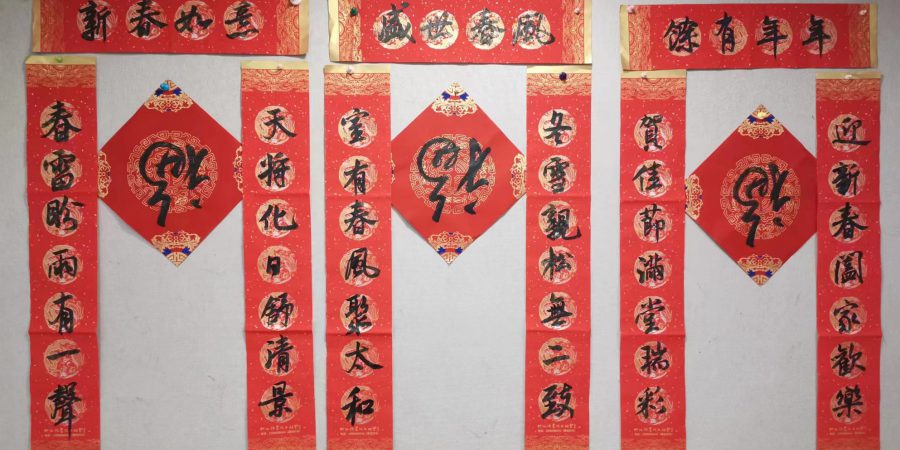 新春如意
天將化日舒清景
春雷盼雨有一聲
福
盛世春風
冬雪觀松無二致
室有春風聚太和
福
年年有餘
迎新春闔家歡樂
賀佳節滿堂瑞彩
福